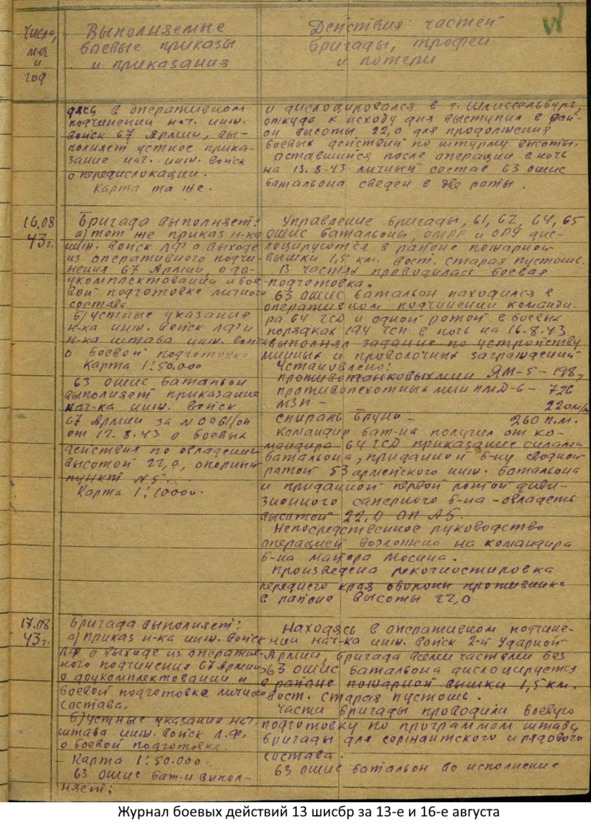 Число, м-ц и год
Выполняемые боевые приказы и приказания
Действия частей бригады, трофеи и потери
дясь в оперативном
подчинении нач. инж.
войск 67 Армии, вы-
полняет устное прика-
зание нач. инж. войск
о передислокации.
Карта та же.
и дислоцировался в г. Шлиссельбург,
откуда к исходу дня выступил в рай-
он высоты 22,0 для продолжения
боевых действий по штурму высоты.
Оставшийся после операции в ночь
на 13.8.43 личный состав 63 ошис
батальона сведен в две роты.
16.08
43г.
Бригада выполняет:
а) тот же приказ н-ка
инж. войск ЛФ о выходе
из оперативного подчи-
нения 67 Армии, о до-
укомплектовании и бое-
вой подготовке личного
состава
б) устные указания
н-ка инж. войск ЛФ и
н-ка штаба инж. войск
о боевой подготовке
Карта 1:50.000
63 ошис батальон
выполняет приказание
нач-ка инж. войск
67 Армии за №0061/оп
от 12.8.43 о боевых
действиях по овладению
высотой 22,0, опорный
пункт №5.
Карта 1:10000.
Управление бригады, 61, 62, 64, 65
ошис батальоны, и ОРУ дис-
лоцируются в районе пожарной
вышки 1,5 км. вост. Старая Пустошь.
В частях проводилась боевая
подготовка.
63 ошис батальон находился в
оперативном подчинении команди-
ра 64 ГСД и одной ротой в боевых
порядках 194 ГСП. в ночь на 16.8.43
выполнял задание по устройству
минных и проволочных заграждений
Установлено:
противотанковых мин ЯМ-5 - 188,
противопехотных мин ПМД-6 - 726
МЗП - 220 м/
спираль Бруно - 260 п.м.
Командир бат-на получил от ко-
мандира 64 ГСД приказание силами
батальона, приданной б-ну сводной
ротой 53 армейского инж. батальона
и приданной первой ротой диви-
зионного саперного б-на - овладеть
высотой 22,0 ОП А5.
Непосредственное руководство
операцией возложено на командира
б-на майора Мосина.
Произведена рекогносцировка
переднего края обороны противника
в районе высоты 22,0
17.08
43г.
Бригада выполняет:
а) приказ н-ка инж. войск
ЛФ о выходе из оператив-
ного подчинения 67 Армии
о доукомплектовании и
боевой подготовке личного
состава.
б) устные указания нач.
штаба инж. войск Л.Ф.
о боевой подготовке
Карта 1:50.000.
63 ошис бат-н выпол-
няет:
Находясь в оперативном подчине-
нии нач-ка инж. войск 2-й Ударной
Армии, бригада всеми частями без
63 ошис батальона дислоцируется
в районе пожарной вышки 1,5 км.
вост. Старая Пустошь.
Части бригады проводили боевую
подготовку по программам штаба
бригады для сержантского и рядового
состава.
63 ошис батальон во исполнение
Журнал боевых действий 13 шисбр за 13-е и 16-е августа